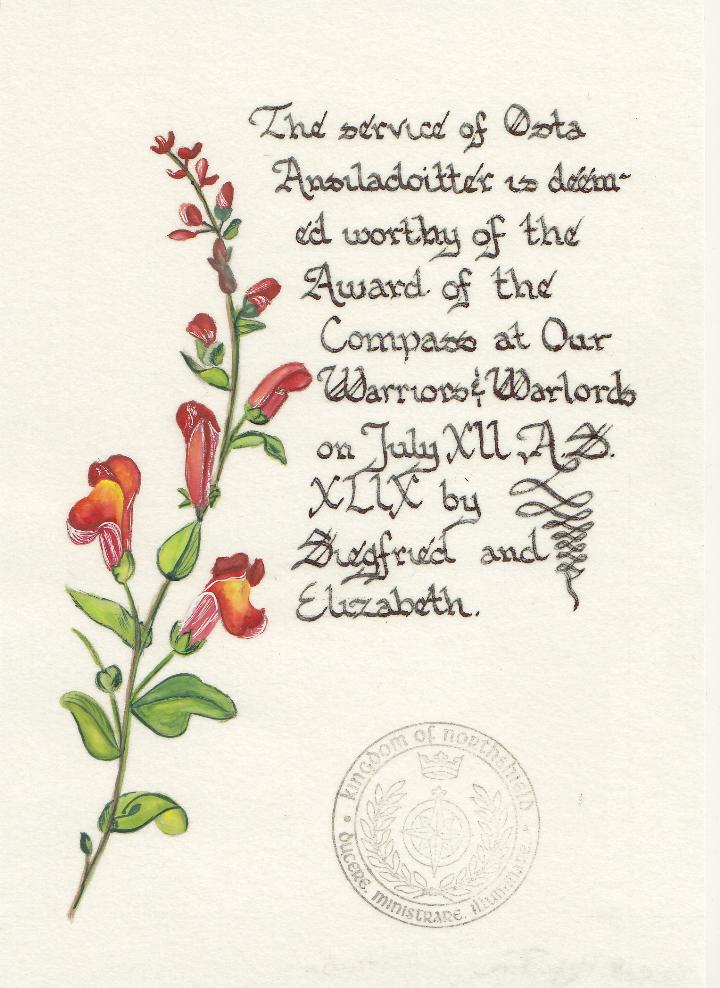 The service of Osta
Ansiladoitter is deem-
ed worthy of the
Award of the
Compass at Our
Warriors & Warlords
on July XII A.S.
XLIX by
Siegfried and
Elizabeth.
kingdom of northshield
ducere, ministrare, illuminare